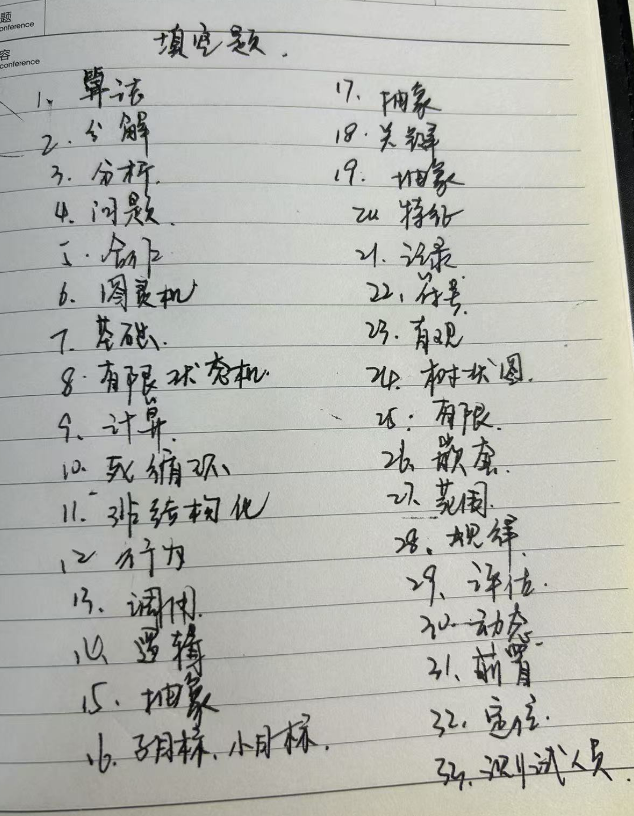 题
onference
容
conference
填空题.
1. 算法
2. 分解
3. 分析.
4. 问题.
5. 合作
6. 图灵机
7. 基础.
8. 有限状态机.
9. 计算.
10. 死循环
11. 非结构化
12 行为
13. 调用.
14. 逻辑
15. 抽象
16. 子目标、小目标.
17. 抽象
18. 关键
19. 抽象
20 特征
21. 记录
22. 符号.
23. 直观
24. 树状图.
25. 有限.
26. 嵌套.
27. 范围.
28. 规律.
29. 评估.
30. 动态
31. 前置
32. 定位.
33. 测试人员.